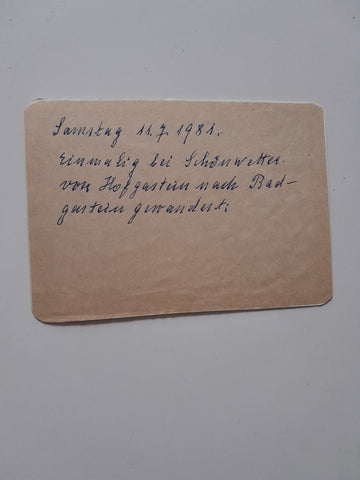 Samstag 11.7.1981.
Einmalig bei Schönwetter
von Hofgastein nach Bad-
gastein gewandert.